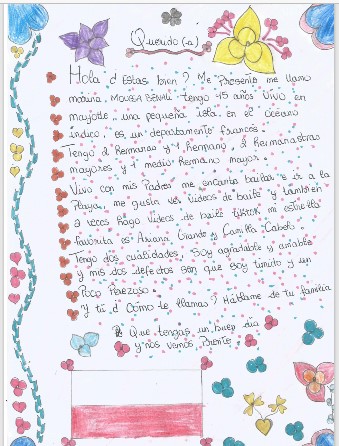 Querido (a)
Hola ¿ Estas bien ? Me Presento me llamo
tengo 15 años Vivo en
mayotte, una pequeña isla, en el Oceano
índico, es un departamento frances.
Tengo 2 hermanas y 1 hermano, 2 hermanastras
mayores y 1 medio hermano mayor.
Vivo con mis Padres me encanta bailar e ir a la
Playa, me gusta ver videos de baile y también
a veces hago videos de baile tiktok mi estrella
favorita es Ariana Grande y Camilla Cabello.
Tengo dos cualidades, soy agradable y amable
y mis dos defectos son que soy timido y un
Poco Perezoso.
Y tú ¿ Cómo te llamas ? Háblame de tu familia
Que tengas un buen día
y nos vemos Pronto.